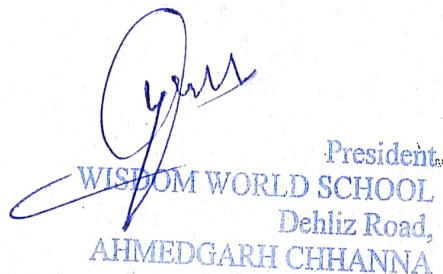 President
WISDOM WORLD SCHOOL
Dehliz Road,
AHMEDGARH CHHANNA